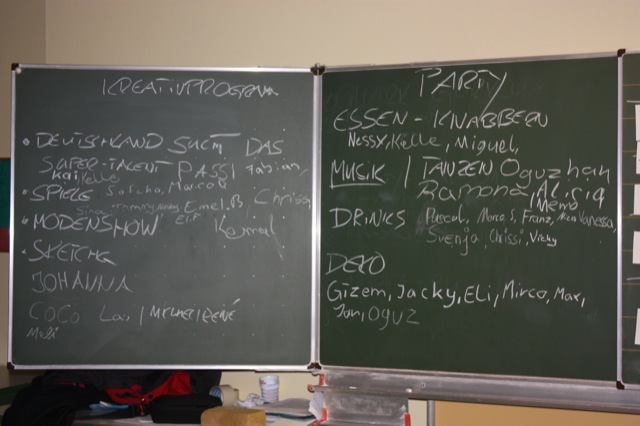 KREATIVPROGRAMM
• DEUTSCHLAND SUCHT DAS
SUPER-TALENT PASSI Fabian,
Kai Kelle
• SPIELE Sascha, Marco
Emel.B Chrissi
• MODENSHOW Elif Kemal
• SKETCHE
JOHANNA
COCO Lac
PARTY
ESSEN - KNABBERN
Nessy, Kelle, Miguel,
MUSIK | TANZEN Oguzhan
Ramona, Alisia
Memo
DRINKS Pascal, Marco S, Franz, Vanessa,
Svenja, Chrissi, Vicky
DEKO
Gizem, Jacky, Eli, Mirco, Max,
Jan, Oguz